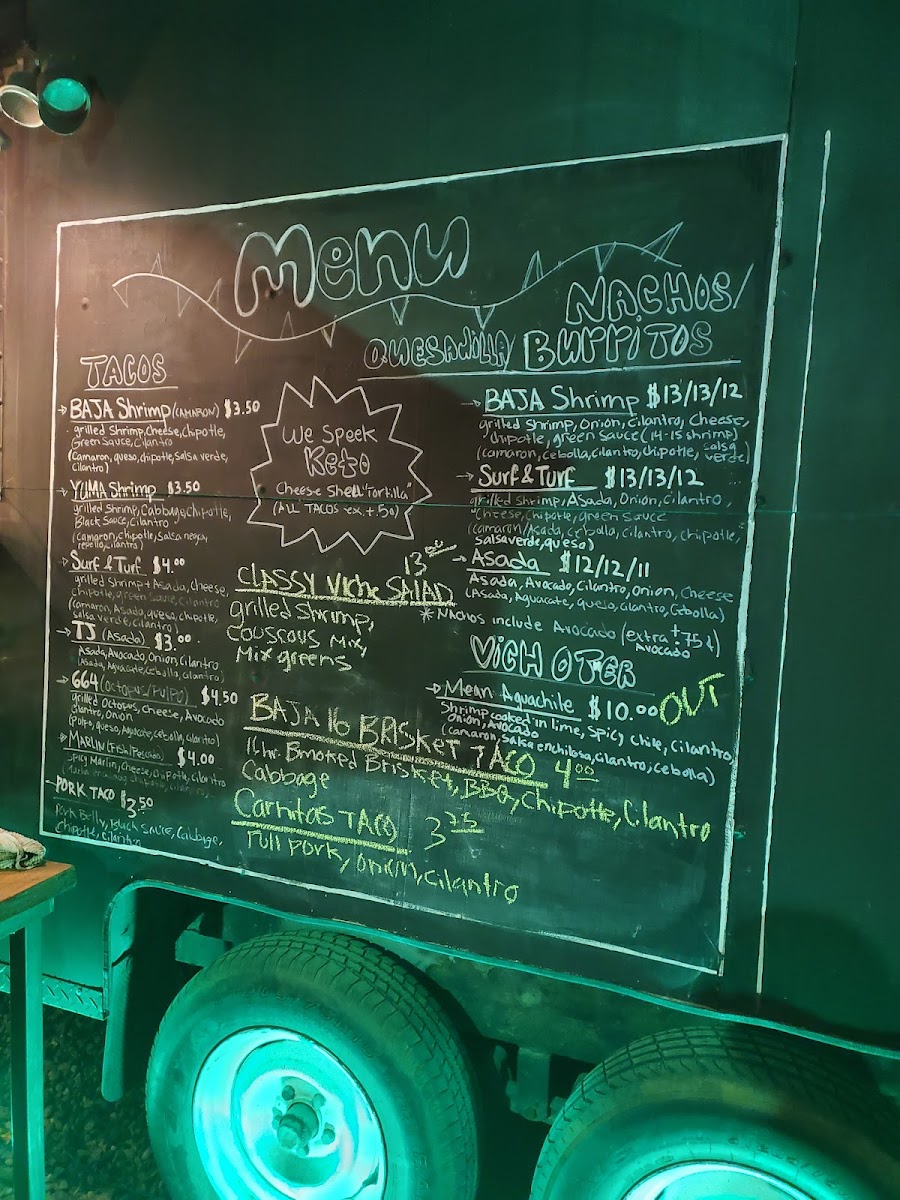 Menu
TACOS
→ BAJA Shrimp (CAMARON) $3.50
grilled shrimp, cheese, chipotle,
Green Sauce, Cilantro
(camaron, queso, chipotle, salsa verde,
cilantro)
→ YUMA Shrimp $3.50
grilled Shrimp, Cabbage, Chipotle,
Black Sauce, Cilantro
(camaron, chipotle, salsa negra,
repollo, cilantro)
→ Surf & Turf $4.00
grilled shrimp + Asada, cheese,
Chipotle, green sauce, cilantro
(camaron, Asada, queso, chipotle,
salsa verde, cilantro)
→ TJ (Asada) $3.00
Asada, Avocado, Onion, Cilantro
(Asada, Aguacate, cebolla, cilantro)
→ 664 (octopus/Pulpo) $4.50
grilled octopus, cheese, Avocado
cilantro, onion
(pulpo, queso, Aguacate, cebolla, cilantro)
→ MARLIN (Fish/Pescado) $4.00
Spicy Marlin, Cheese, Chipotle, Cilantro
→ PORK TACO $3.50
Pork Belly, Black sauce, Cabbage,
Chipotle, Cilantro
We Speek
Keto
Cheese Shell "Tortilla"
(ALL TACOS ex. + 50)
CLASSY Viche SALAD 13.00
grilled Shrimp,
COUSCOUS Mix,
Mix greens
BAJA 16 BRISKET TACO 4.00
16hr. Smoked Brisket, BBQ, Chipotle, Cilantro
Cabbage
Carnitas TACO 3.75
Pull pork, onion, cilantro
NACHOS/
QUESADILLA/ BURRITOS
→ BAJA Shrimp $13/13/12
grilled shrimp, Onion, cilantro, cheese,
chipotle, green sauce (14-15 shrimp)
(camaron, cebolla, cilantro, chipotle, salsa verde)
→ Surf & Turf $13/13/12
grilled shrimp, Asada, Onion, cilantro,
cheese, chipotle, green sauce
(camaron/Asada, cebolla, cilantro, chipotle,
salsa verde, queso)
→ Asada $12/12/11
Asada, Avocado, Cilantro, onion, Cheese
(Asada, Aguacate, queso, cilantro, cebolla)
* Nachos include Avocado (extra + 75¢ Avocado)
VICH OTER
→ Mean Aguachile $10.00 OUT
Shrimp cooked in lime, spicy chile, cilantro,
onion, Avocado
(camaron, salsa enchilosa, cilantro, cebolla)